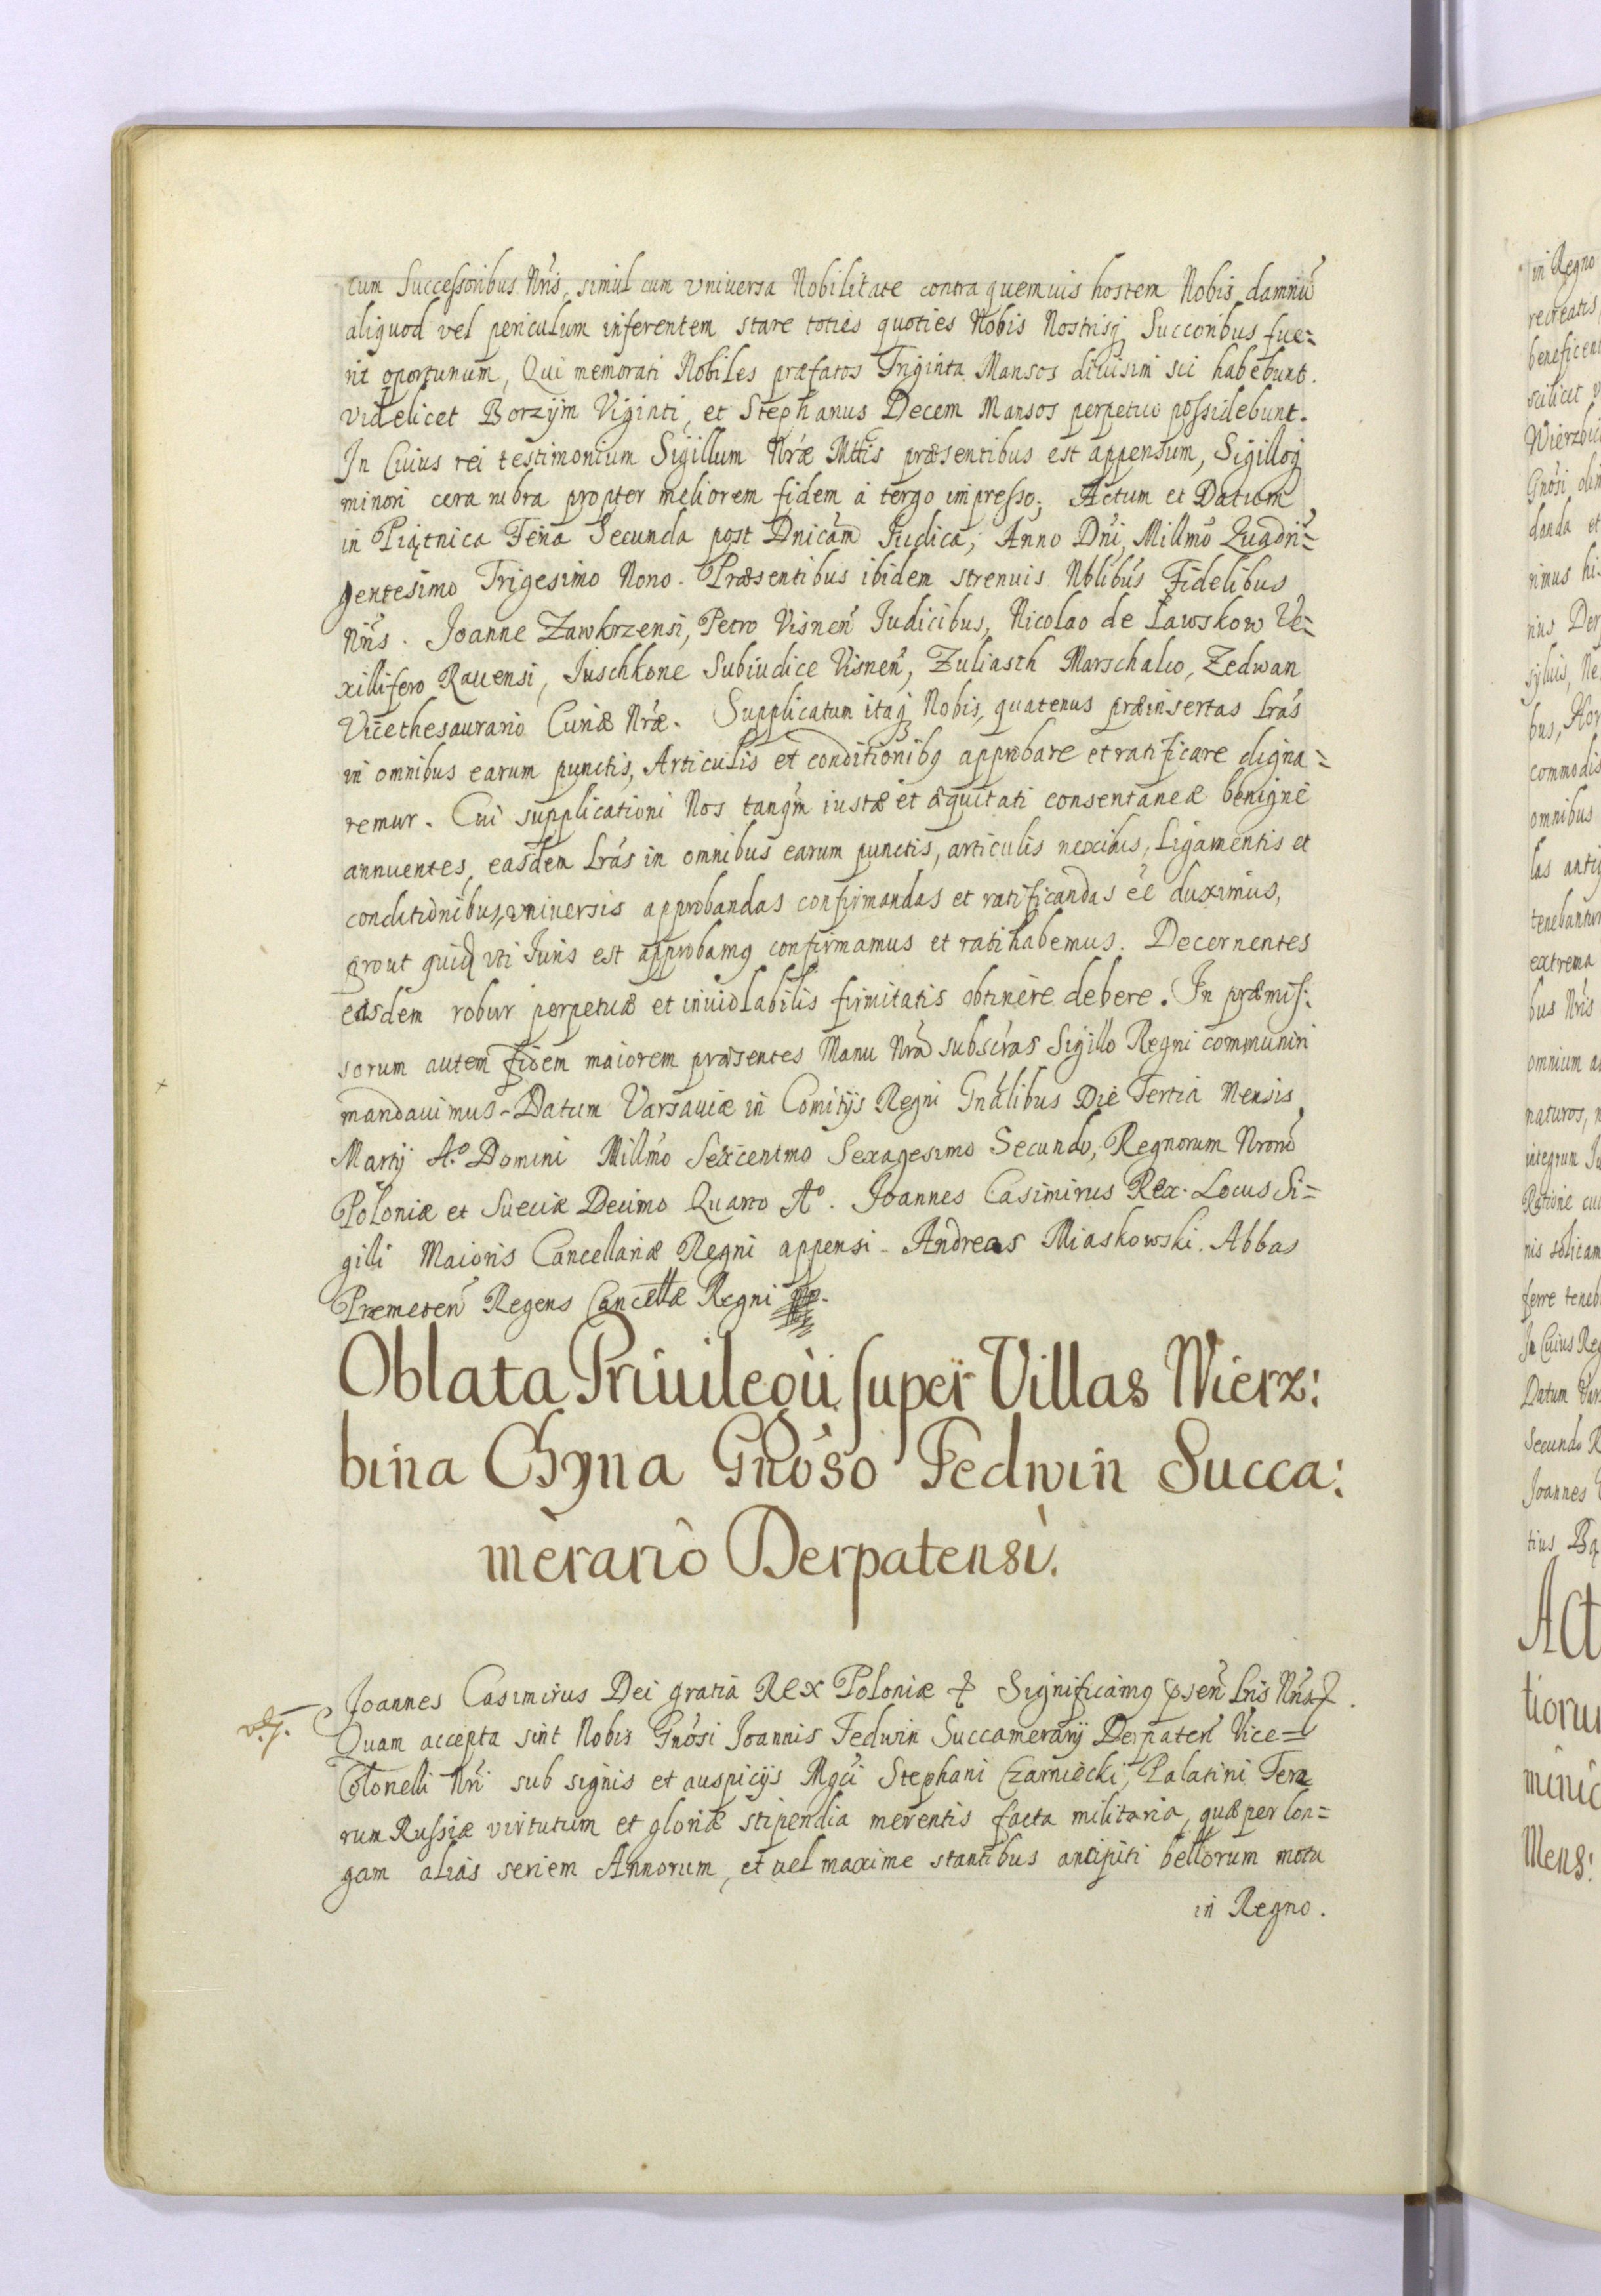 cum Successoribus Nr̃is, simul cum vniuersa Nobilitate contra quemuis hostem Nobis damnũ
aliquod vel periculum inferentem stare toties quoties Nobis Nostrisq; Succoribus fue=
rit oportunum, Qui memorati Nobiles præfatos Triginta Mansos diuisim sci habebunt.
videlicet Borzÿm Viginti, et Stephanus Decem Mansos perpetuo possidebunt.
In Cuius rei testimonium Sigillum Nr̃æ Mttis præsentibus est appensum, Sigilloq;
minori cera rubra propter meliorem fidem à tergo impresso; Actum et Datum
in Piątnica Feria Secunda post Dnicam Iudica, Anno Dñi Millmo Quadri=
gentesimo Trigesimo Nono. Præsentibus ibidem strenuis Nblibus Fidelibus
Nr̃is. Joanne Zawkrzensi, Petro Visneñ Judicibus, Nicolao de Lawskow Ve=
xillifero Rauensi, Juschkone Subiudice Visneñ, Zuliasth Marschalco, Zedwan
Vicethesaurario Curiæ Nr̃æ. Supplicatum itaq; Nobis, quatenus præinsertas Lras
in omnibus earum punctis, Articulis et conditionibq approbare et ratificare digna=
remur. Cui supplicationi Nos tanqm iustæ et æquitati consentaneæ benigne
annuentes, easdem Lras in omnibus earum punctis, articulis nexibus, Ligamentis et
conditionibus, vniuersis approbandas confirmandas et ratificandas ee duximus,
prout quidẽ vti Iuris est approbamq confirmamus et ratihabemus. Decernentes
easdem robur perpetuæ et inuiolabilis firmitatis obtinere debere. In præmis:
sorum autem fidem maiorem præsentes Manu Nrã subscras Sigillo Regni communiri
mandauimus. Datum Varsauiæ in Comitijs Regni Gnãlibus Die Tertia Mensis
Martij A.º Domini Millmo Sexcentmo Sexagesimo Secundo, Regnorum Nrorũ
Poloniæ et Sueciæ Decimo Quarto Aº. Joannes Casimirus Rex. Locus Si=
gilli Maioris Cancellariæ Regni appensi. Andreas Miaskowski. Abbas
Premeteñ Regens Cancellæ Regni
Oblata Priuilegij super Villas Wierz:
bina Chyna Gnoso Fedwin Succa:
merario Derpatensi.
Joannes Casimirus Dei gratia Rex Poloniæ & Significamq pseñ Lris Nris &.
Quam accepta sint Nobis Gnosi Joannis Fedwin Succamerarij Derpateñ Vice=
Colonelli Nri sub signis et auspicijs Mgci Stephani Czarniecki, Palatini Terra
rum Russiæ virtutum et gloriæ stipendia merentis facta militaria, quæ per lon=
gam alias seriem Annorum, et vel maxime stantibus ancipiti bellorum motu
in Regno.